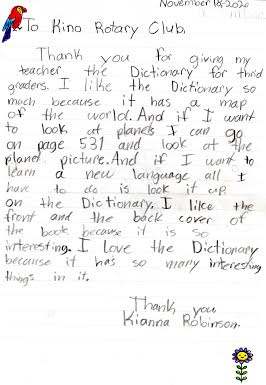 November 18, 2020
To Kino Rotary Club,
Thank you for giving my
teacher the Dictionary for thrid
graders. I like the Dictionary so
much because it has a map
of the world. And if I want
to look at planets I can go
on page 531 and look at the
planet picture. And if I want to
learn a new language all I
have to do is look it up
on the Dictionary. I like the
front and the back cover of
the book because it is so
interesting. I love the Dictionary
because it has so many interesting
things in it.
Thank you
Kianna Robinson.